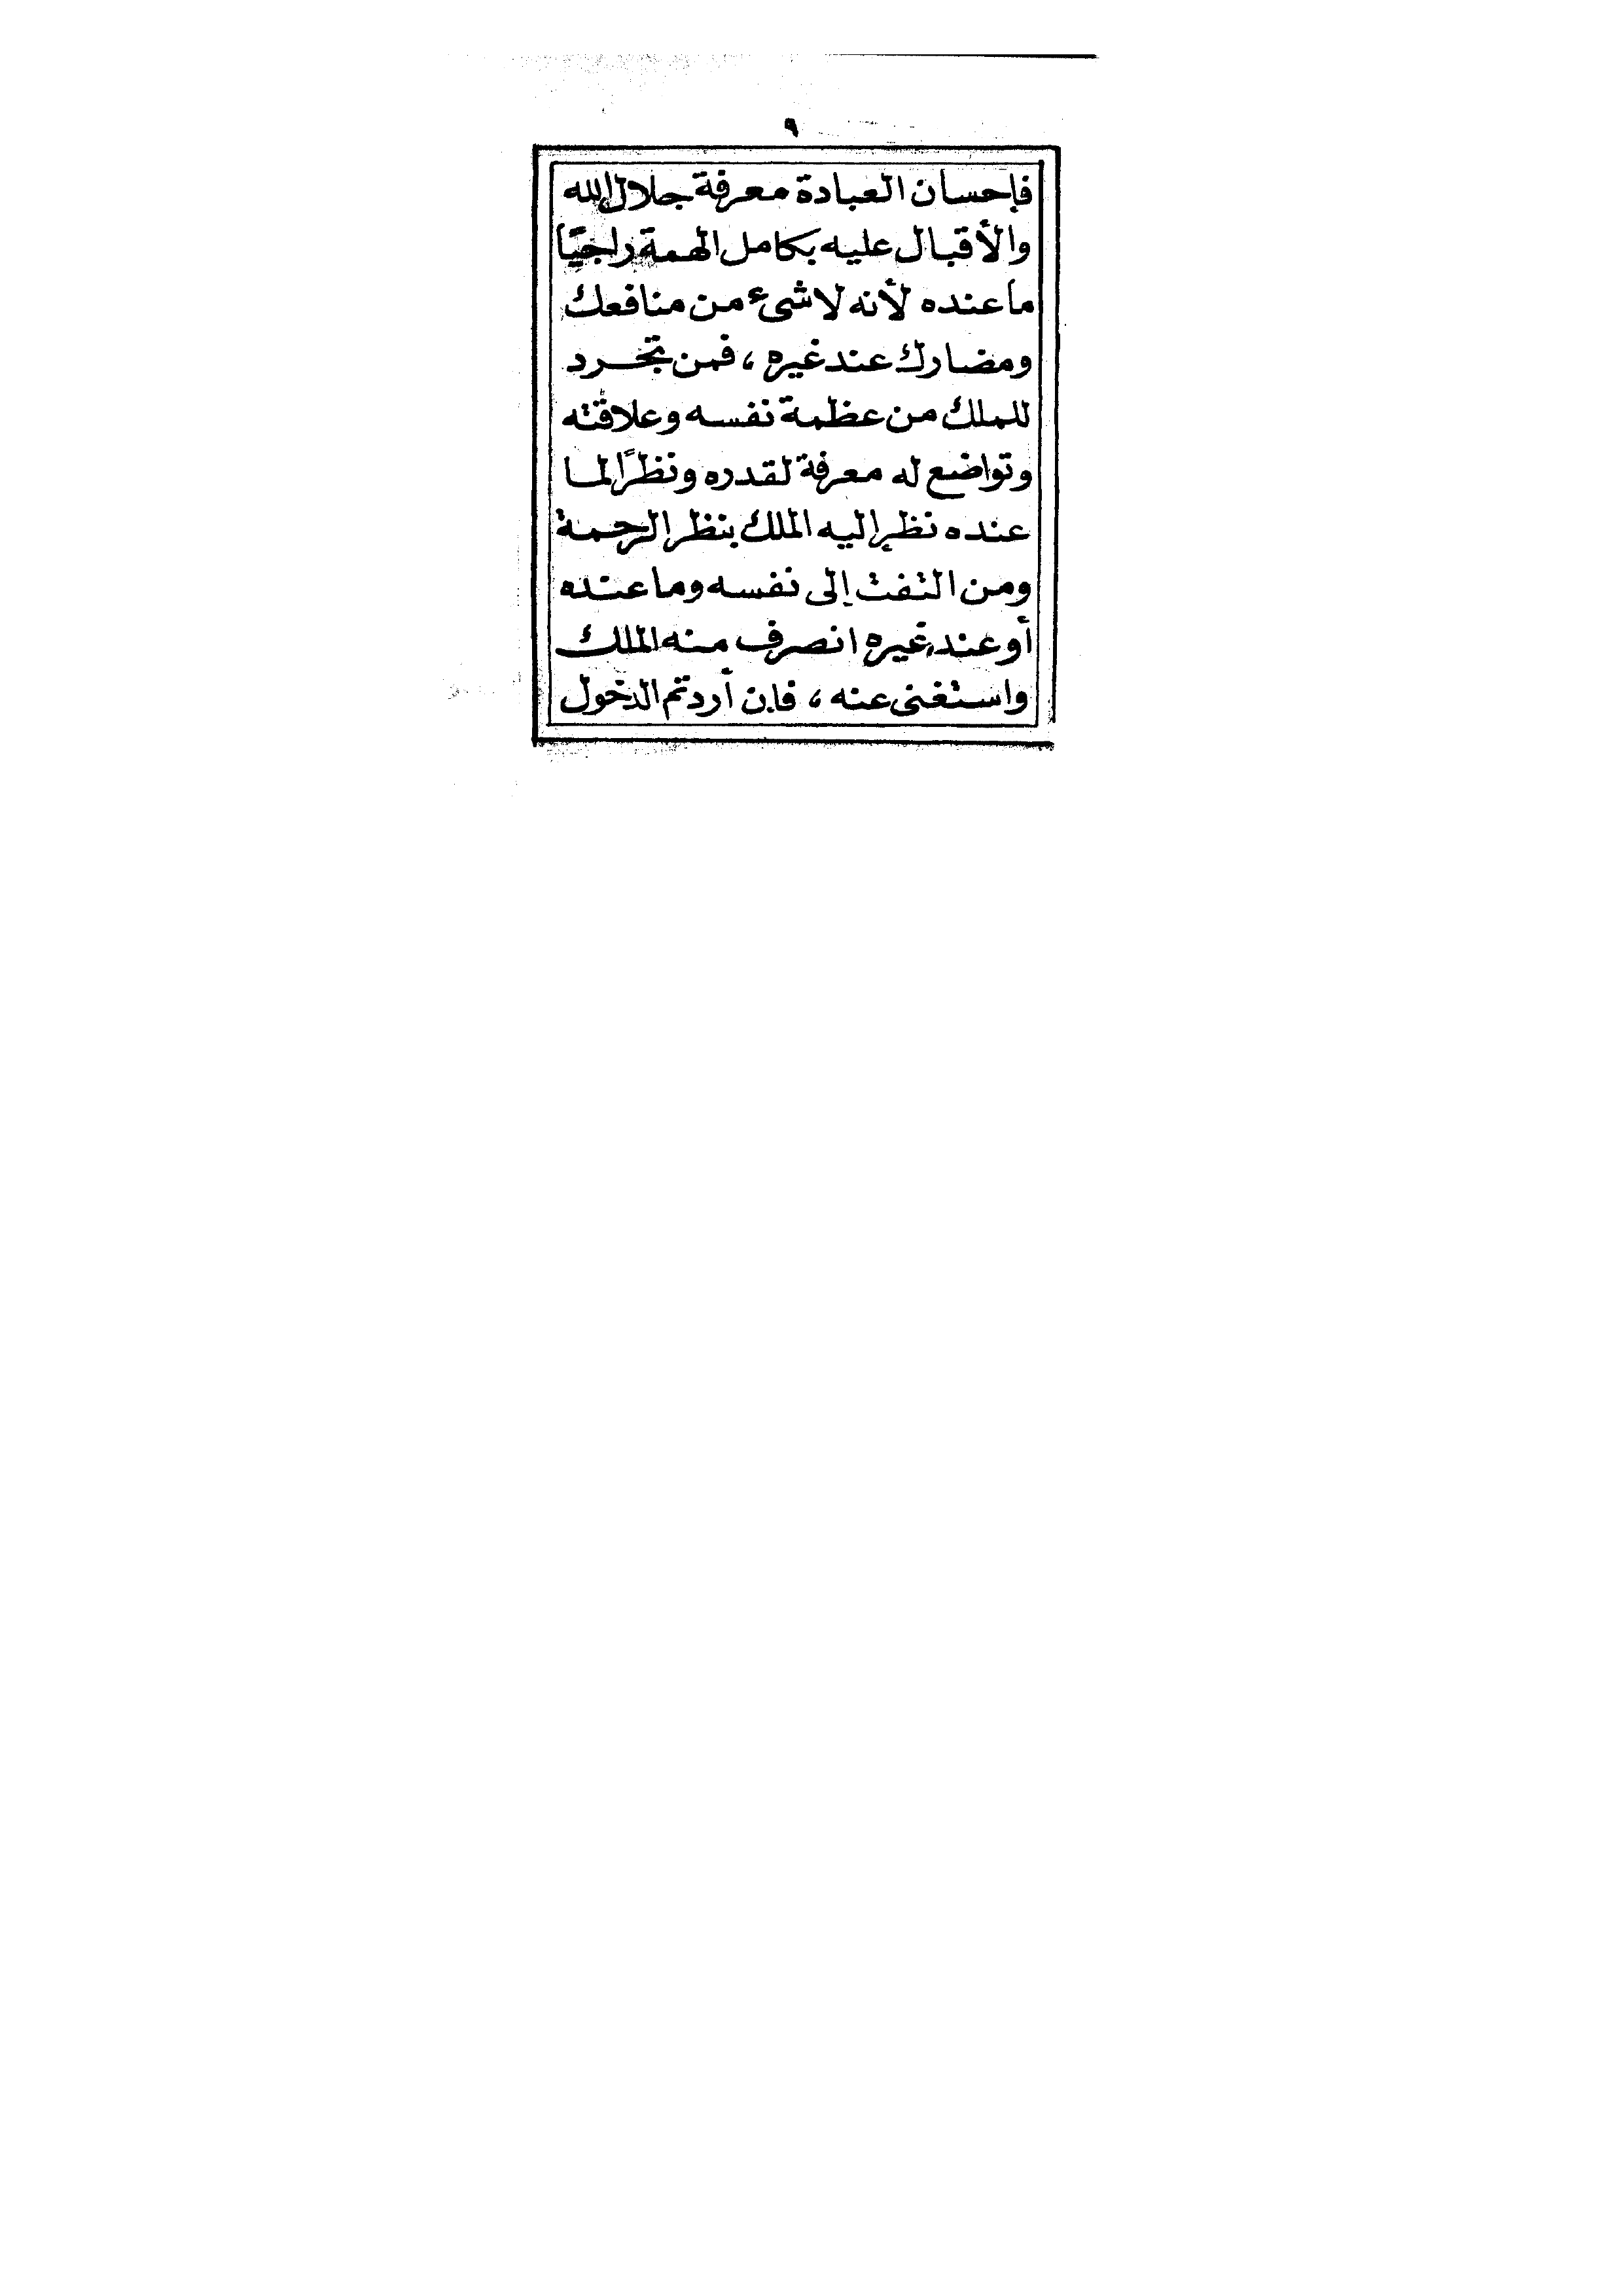 ٩
فإحسان العبادة معرفة جلال الله
والأقبال عليه بكامل الهمة راجيًا
ما عنده لأنه لا شئ من منافعك
ومضارك عند غيره ، فمن تجرد
للملك من عظمة نفسه وعلاقته
وتواضع له معرفة لقدره ونظرًا لما
عنده نظر إليه الملك بنظر الرحمة
ومن التفت إلى نفسه وما عنده
أو عند غيره انصرف منه الملك
واستغنى عنه ، فإن أردتم الدخول